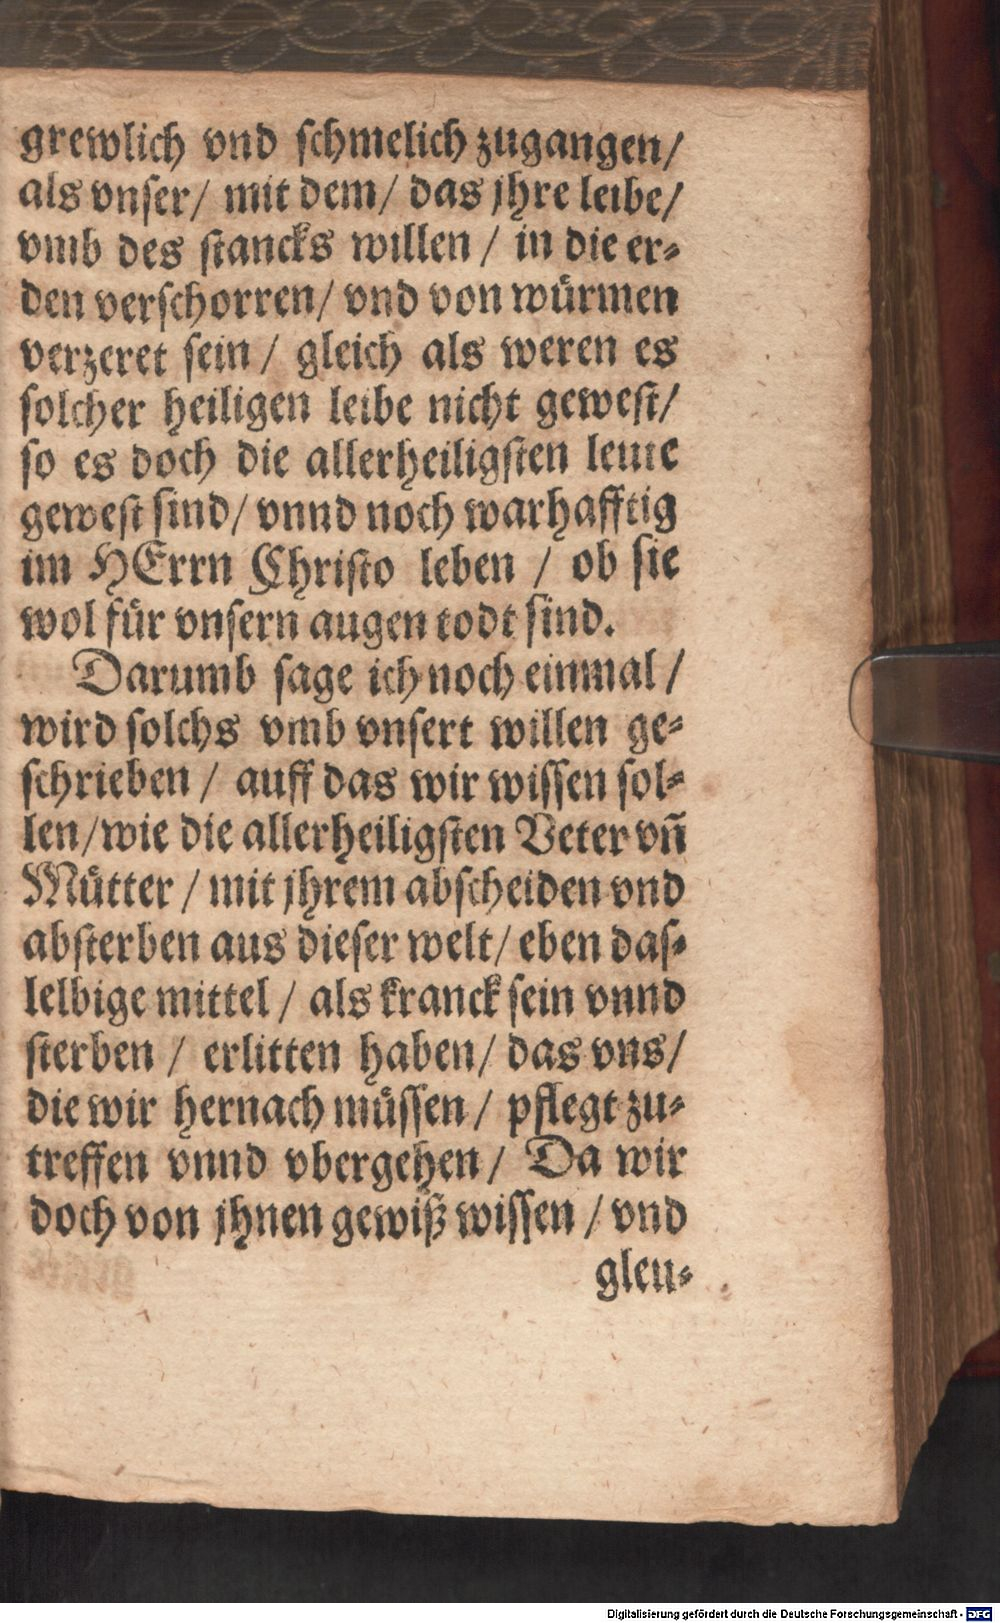 grewlich vnd schmelich zugangen/
als vnser/ mit dem/ das jhre leibe/
vmb des stancks willen / in die er-
den verschorren/ vnd von würmen
verzeret sein / gleich als weren es
solcher heiligen leibe nicht gewest/
so es doch die allerheiligsten leute
gewest sind/ vnnd noch warhafftig
im HErrn Christo leben / ob sie
wol für vnsern augen todt sind.
Darumb sage ich noch einmal /
wird solchs vmb vnsert willen ge-
schrieben / auff das wir wissen sol-
len/wie die allerheiligsten Veter vn̄
Mütter / mit jhrem abscheiden vnd
absterben aus dieser welt/ eben das-
lelbige mittel / als kranck sein vnnd
sterben / erlitten haben/ das vns/
die wir hernach müssen / pflegt zu-
treffen vnnd vbergehen/ Da wir
doch von jhnen gewiß wissen / vnd
gleu-
Digitalisierung gefördert durch die Deutsche Forschungsgemeinschaft - DFG